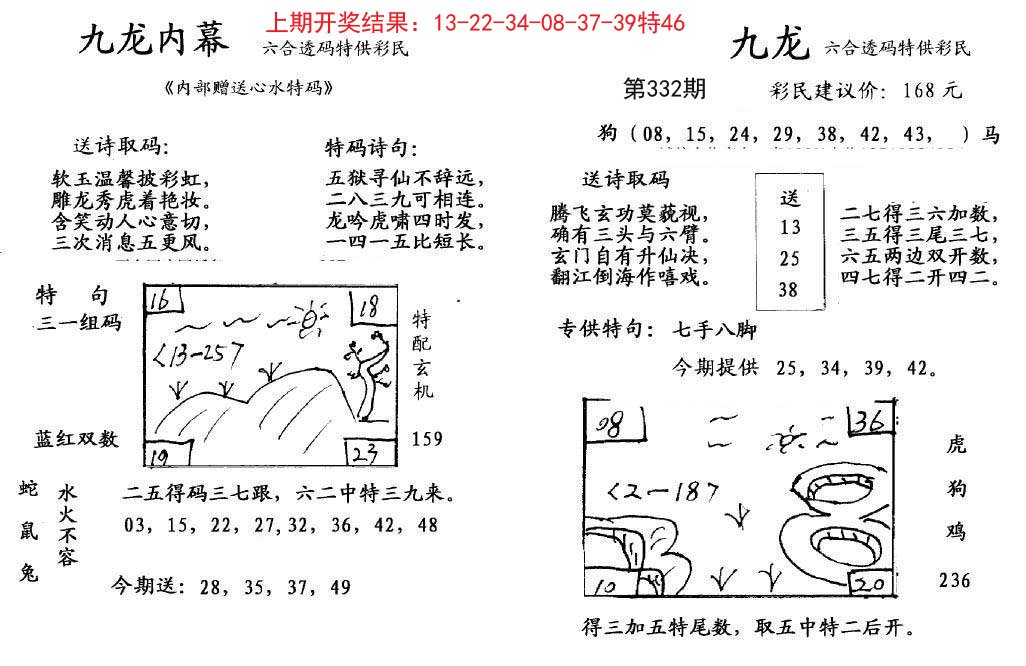 上期开奖结果：13-22-34-08-37-39特46
九龙内幕 六合透码特供彩民
《内部赠送心水特码》
送诗取码：
软玉温馨披彩虹，
雕龙秀虎着艳妆。
含笑动人心意切，
三次消息五更风。
特码诗句：
五狱寻仙不辞远，
二八三九可相连。
龙吟虎啸四时发，
一四一五比短长。
特 句
三一组码
蓝红双数
16
18
<13-25>
19
23
特配玄机
159
蛇鼠兔
水火不容
二五得码三七跟，六二中特三九来。
03，15，22，27，32，36，42，48
今期送：28，35，37，49
九龙 六合透码特供彩民
第332期 彩民建议价：168元
狗（08，15，24，29，38，42，43， ）马
送诗取码
腾飞玄功莫藐视，
确有三头与六臂。
玄门自有升仙决，
翻江倒海作嘻戏。
送
13
25
38
二七得三六加数，
三五得三尾三七，
六五两边双开数，
四七得二开四二。
专供特句：七手八脚
今期提供 25，34，39，42。
08
36
<2-18>
10
20
虎
狗
鸡
236
得三加五特尾数，取五中特二后开。